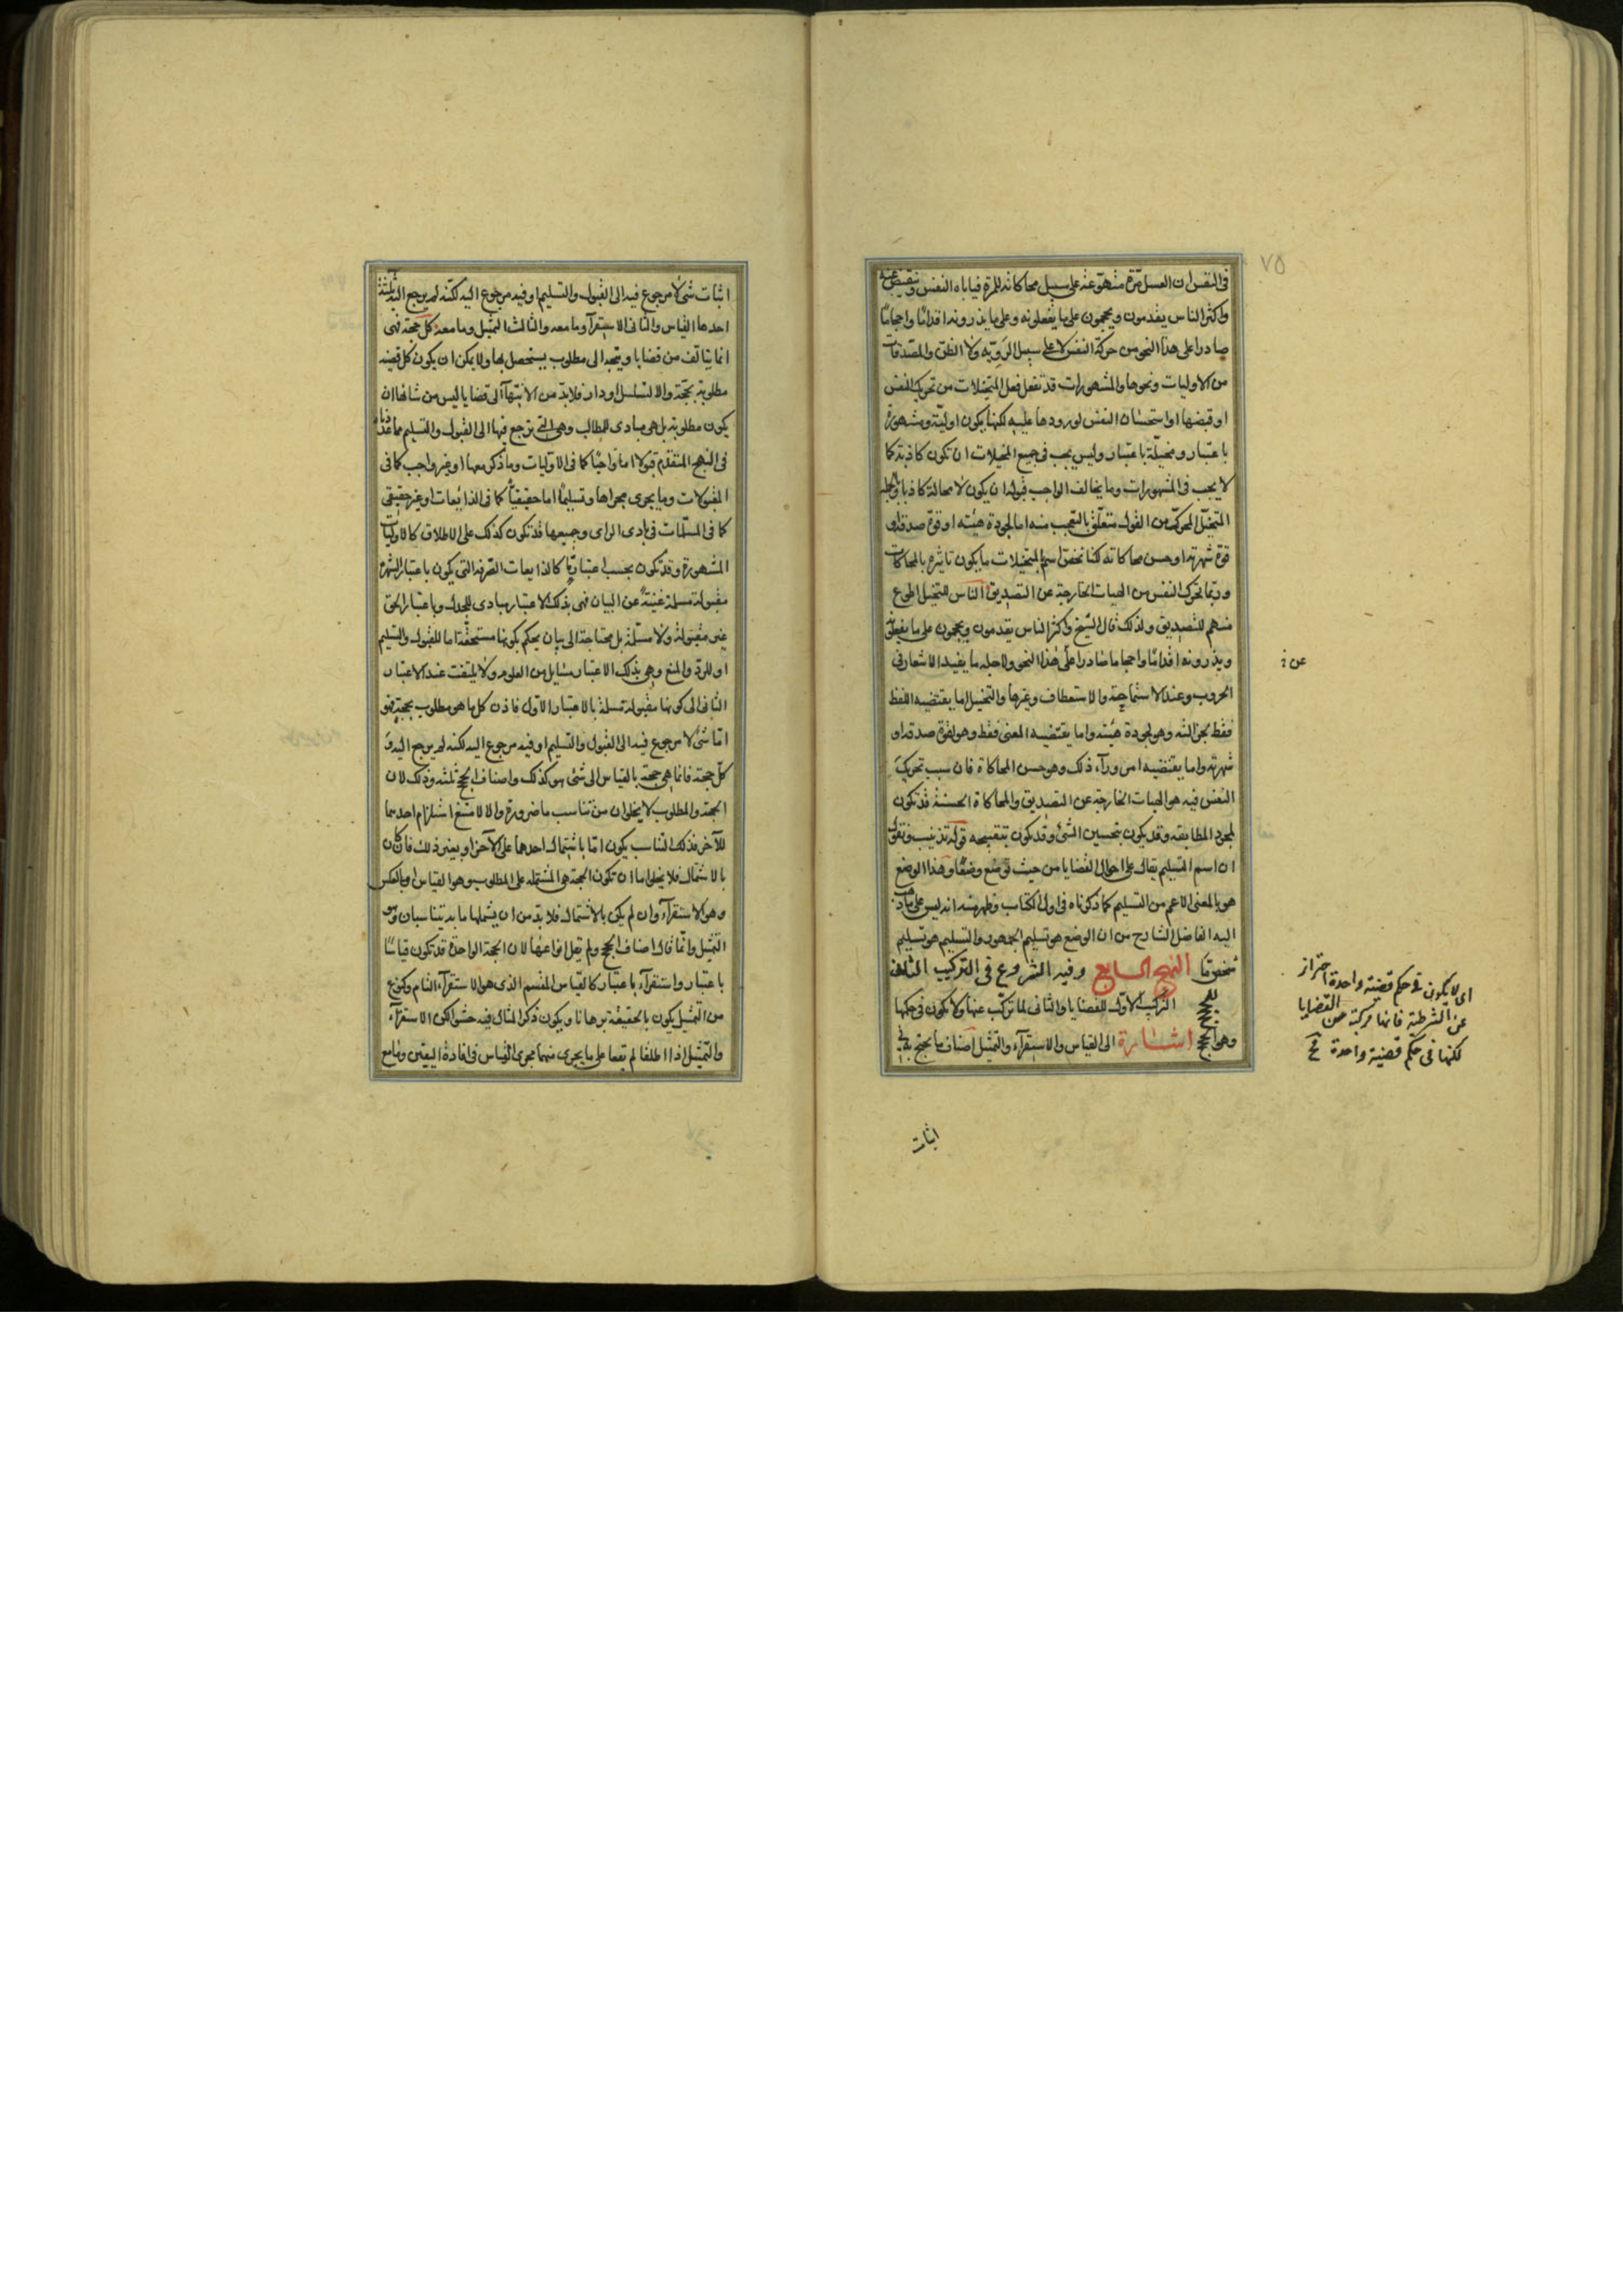 ٧٥
في النفس ان العسل مرّة مهوّعة على سبيل محاكاته للمرة فياباه النفس وتنقبض عنه
واكثر الناس يقدمون ويحجمون على ما يفعلونه وعلى ما يذرونه اقدامًا واحجامًا
صادرا على هذا النحو من حركة النفس لا على سبيل الروية ولا الظن والمصدقات
من الاوليات ونحوها والمشهورات قد تفعل فعل المتخيلات من تحريك النفس
او قبضها او استحسان النفس لورودها عليه لكنها يكون اولية ومشهورة
باعتبار ومخيلة باعتبار وليس يجب في جميع المخيلات ان تكون كاذبة كما
لا يجب في المشهورات وما يخالف الواجب قبوله ان يكون لا محالة كاذبا وبالجملة
المتخيل المحرك من القول متعلق بالتعجب منه اما لجودة هيئته او قوة صدقه او
قوة شهرته او حسن محاكاته لكنا نخص اسم المتخيلات ما يكون تاثيره بالمحاكات
وربما تحرك النفس من الهيات الخارجة عن التصديق الناس للتخيل اطوع
منهم للتصديق ولذلك قال الشيخ واكثر الناس يقدمون ويحجمون على ما يفعلونه
ويذرونه اقدامًا واحجاما صادرا على هذا النحو ولاجله ما يفيد الاشعار في
الحروب وعند الاستماحة والاستعطاف وغيرها والتخييل اما يقتضيه اللفظ
فقط بجزالته وهو لجودة هيئته واما يقتضيه المعنى فقط وهو لقوة صدقه او
شهرته واما يقتضيه امر وراء ذلك وهو حسن المحاكاة فان سبب تحريك
النفس فيه هو الهيات الخارجة عن التصديق والمحاكاة الحسنة قد تكون
لمجرد المطابقة وقد يكون بتحسين الشئ وقد يكون بتقبيحه قوله تذنيب ونقول
ان اسم التسليم يقال على احوال القضايا من حيث توضع وضعًا وهذا الوضع
هو بالمعنى الاعم من التسليم كما ذكرناه في اول الكتاب وظهر منه انه ليس على ما ذهب
اليه الفاضل الشارح من ان الوضع هو تسليم الجمهور والتسليم هو تسليم
شخص ما النهج السابع وفيه الشروع في التركيب الثاني
للحجج التركيب الاول للقضايا والثاني لما تركب عنها ولا تكون في حكمها
وهو الحجج اشارة الى القياس والاستقراء والتمثيل اصناف ما يحتج به في
عن
اى لا يكون في حكم قضية واحدة احتراز
عن الشرطية فانها مركبة من القضايا
لكنها في حكم قضية واحدة
اثبات
اثبات شئ لا مرجوع فيه الى القبول والتسليم او فيه مرجوع اليه لكنه لم يرجع اليه ثلثة
احدها القياس والثاني الاستقراء وما معه والثالث التمثيل وما معه كل حجة فهى
انما يتالف من قضايا ويتجه الى مطلوب يستحصل بها ولا يمكن ان يكون كل قضية
مطلوبة بحجة والا لتسلسل او دار فلا بد من الانتهاء الى قضايا ليس من شانها ان
يكون مطلوبة بل هى مبادى للمطالب وهى التى يرجع فيها الى القبول والتسليم مما عددنا
في النهج المتقدم قبولا اما واجبًا كما في الاوليات وما ذكر معها او غير واجب كما في
المقبولات وما يجرى مجراها وتسليمًا اما حقيقيًا كما في الذائعات او غير حقيقى
كما في المسلمات في بادى الراى وجميعها قد تكون كذلك على الاطلاق كالاوليات
المشهورة وقد تكون بحسب اعتبار ما كالذايعات الصرفة التى يكون باعتبار الشهرة
مقبولة مسلمة غنية عن البيان فهى بذلك الاعتبار مبادى للجدل وباعتبار الحق
غير مقبولة ولا مسلمة بل محتاجة الى بيان يحكم بكونها مستحقة اما للقبول والتسليم
او للرد والمنع وهى بذلك الاعتبار مسايل من العلوم ولا يلتفت عند الاعتبار
الثاني الى كونها مقبولة مسلمة بالاعتبار الاول فاذن كل ما هو مطلوب بحجة فهو
اما شئ لا مرجوع فيه الى القبول والتسليم او فيه مرجوع اليه لكنه لم يرجع اليه و
كل حجة فانما هى حجة بالقياس الى شئ هو كذلك واصناف الحجج ثلثة وذلك لان
الحجة والمطلوب لا يخلوان من تناسب ما ضرورة والا لامتنع استلزام احدهما
للآخر فذلك التناسب يكون اما باشتمال احدهما على الآخر او بغير ذلك فان كان
بالاشتمال فلا يخلو اما ان تكون الحجة هى المشتملة على المطلوب وهو القياس او بالعكس
وهو الاستقراء وان لم يكن بالاشتمال فلا بد من ان يشملها ما به يتناسبان وهو
التمثيل وانما قال اصناف الحجج ولم يقل انواعها لان الحجة الواحدة قد تكون قياسًا
باعتبار واستقراء باعتبار كالقياس المقسم الذى هو الاستقراء التام وكنوع
من التمثيل يكون بالحقيقة برهانا ويكون ذكر المثال فيه حشوا لكن الاستقراء
والتمثيل اذا اطلقا لم يقعا على ما يجرى منهما مجرى القياس في افادة اليقين وما مع